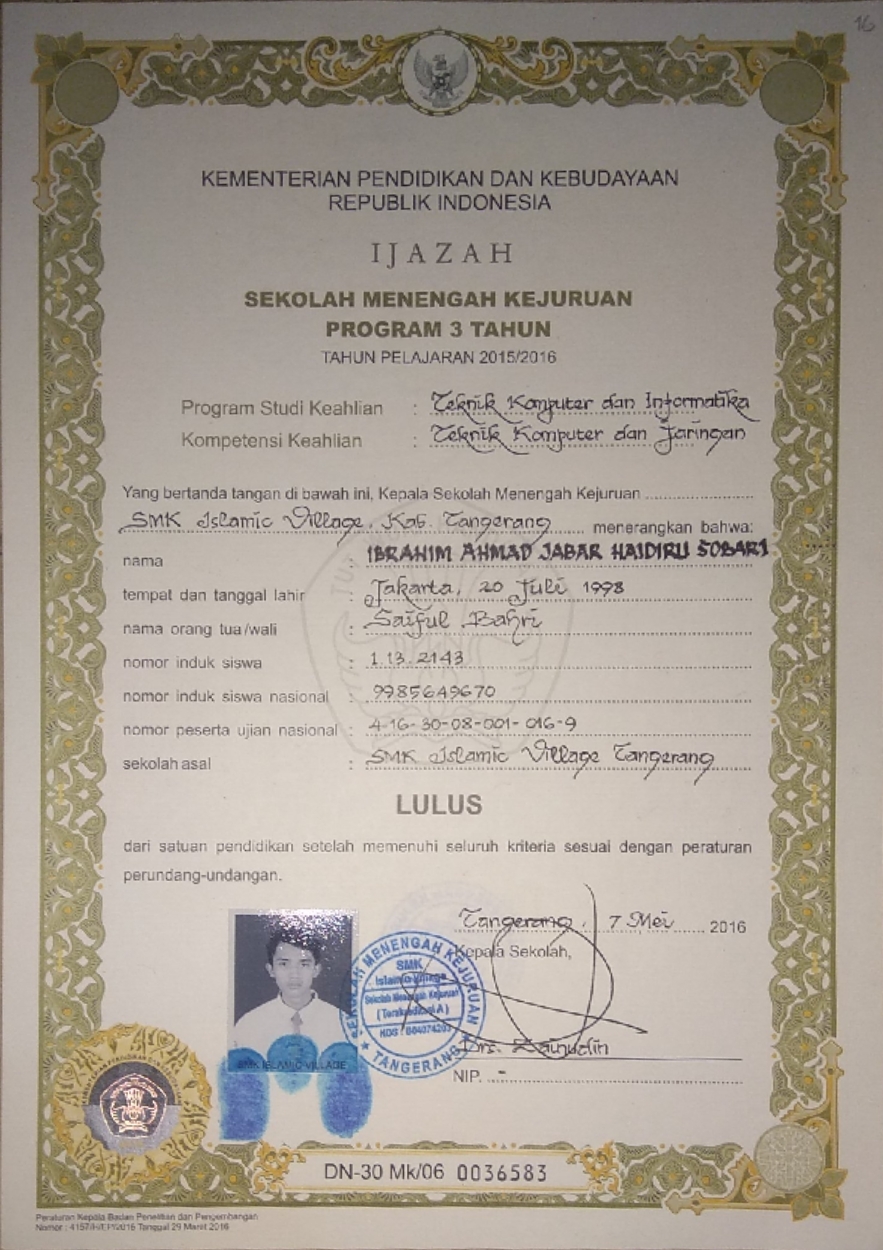 16
KEMENTERIAN PENDIDIKAN DAN KEBUDAYAAN
REPUBLIK INDONESIA
IJAZAH
SEKOLAH MENENGAH KEJURUAN
PROGRAM 3 TAHUN
TAHUN PELAJARAN 2015/2016
Program Studi Keahlian : Teknik Komputer dan Informatika
Kompetensi Keahlian : Teknik Komputer dan Jaringan
Yang bertanda tangan di bawah ini, Kepala Sekolah Menengah Kejuruan
SMK Islamic Village, Kab. Tangerang menerangkan bahwa:
nama : IBRAHIM AHMAD JABAR HAIDIRU SOBARI
tempat dan tanggal lahir : Jakarta, 20 Juli 1998
nama orang tua/wali : Saiful Bahri
nomor induk siswa : 1.13.2143
nomor induk siswa nasional : 9985649670
nomor peserta ujian nasional : 4-16-30-08-001-016-9
sekolah asal : SMK Islamic Village Tangerang
LULUS
dari satuan pendidikan setelah memenuhi seluruh kriteria sesuai dengan peraturan
perundang-undangan.
Tangerang, 7 Mei 2016
Kepala Sekolah,
SEKOLAH MENENGAH KEJURUAN
SMK
Islamic Village
Sekolah Menengah Kejuruan
(Terakreditasi A)
TANGERANG
SMK ISLAMIC VILLAGE
Drs. Zainudin
NIP. -
DN-30 Mk/06 0036583
Peraturan Kepala Badan Penelitian dan Pengembangan
Nomor : Tanggal 29 Maret 2016